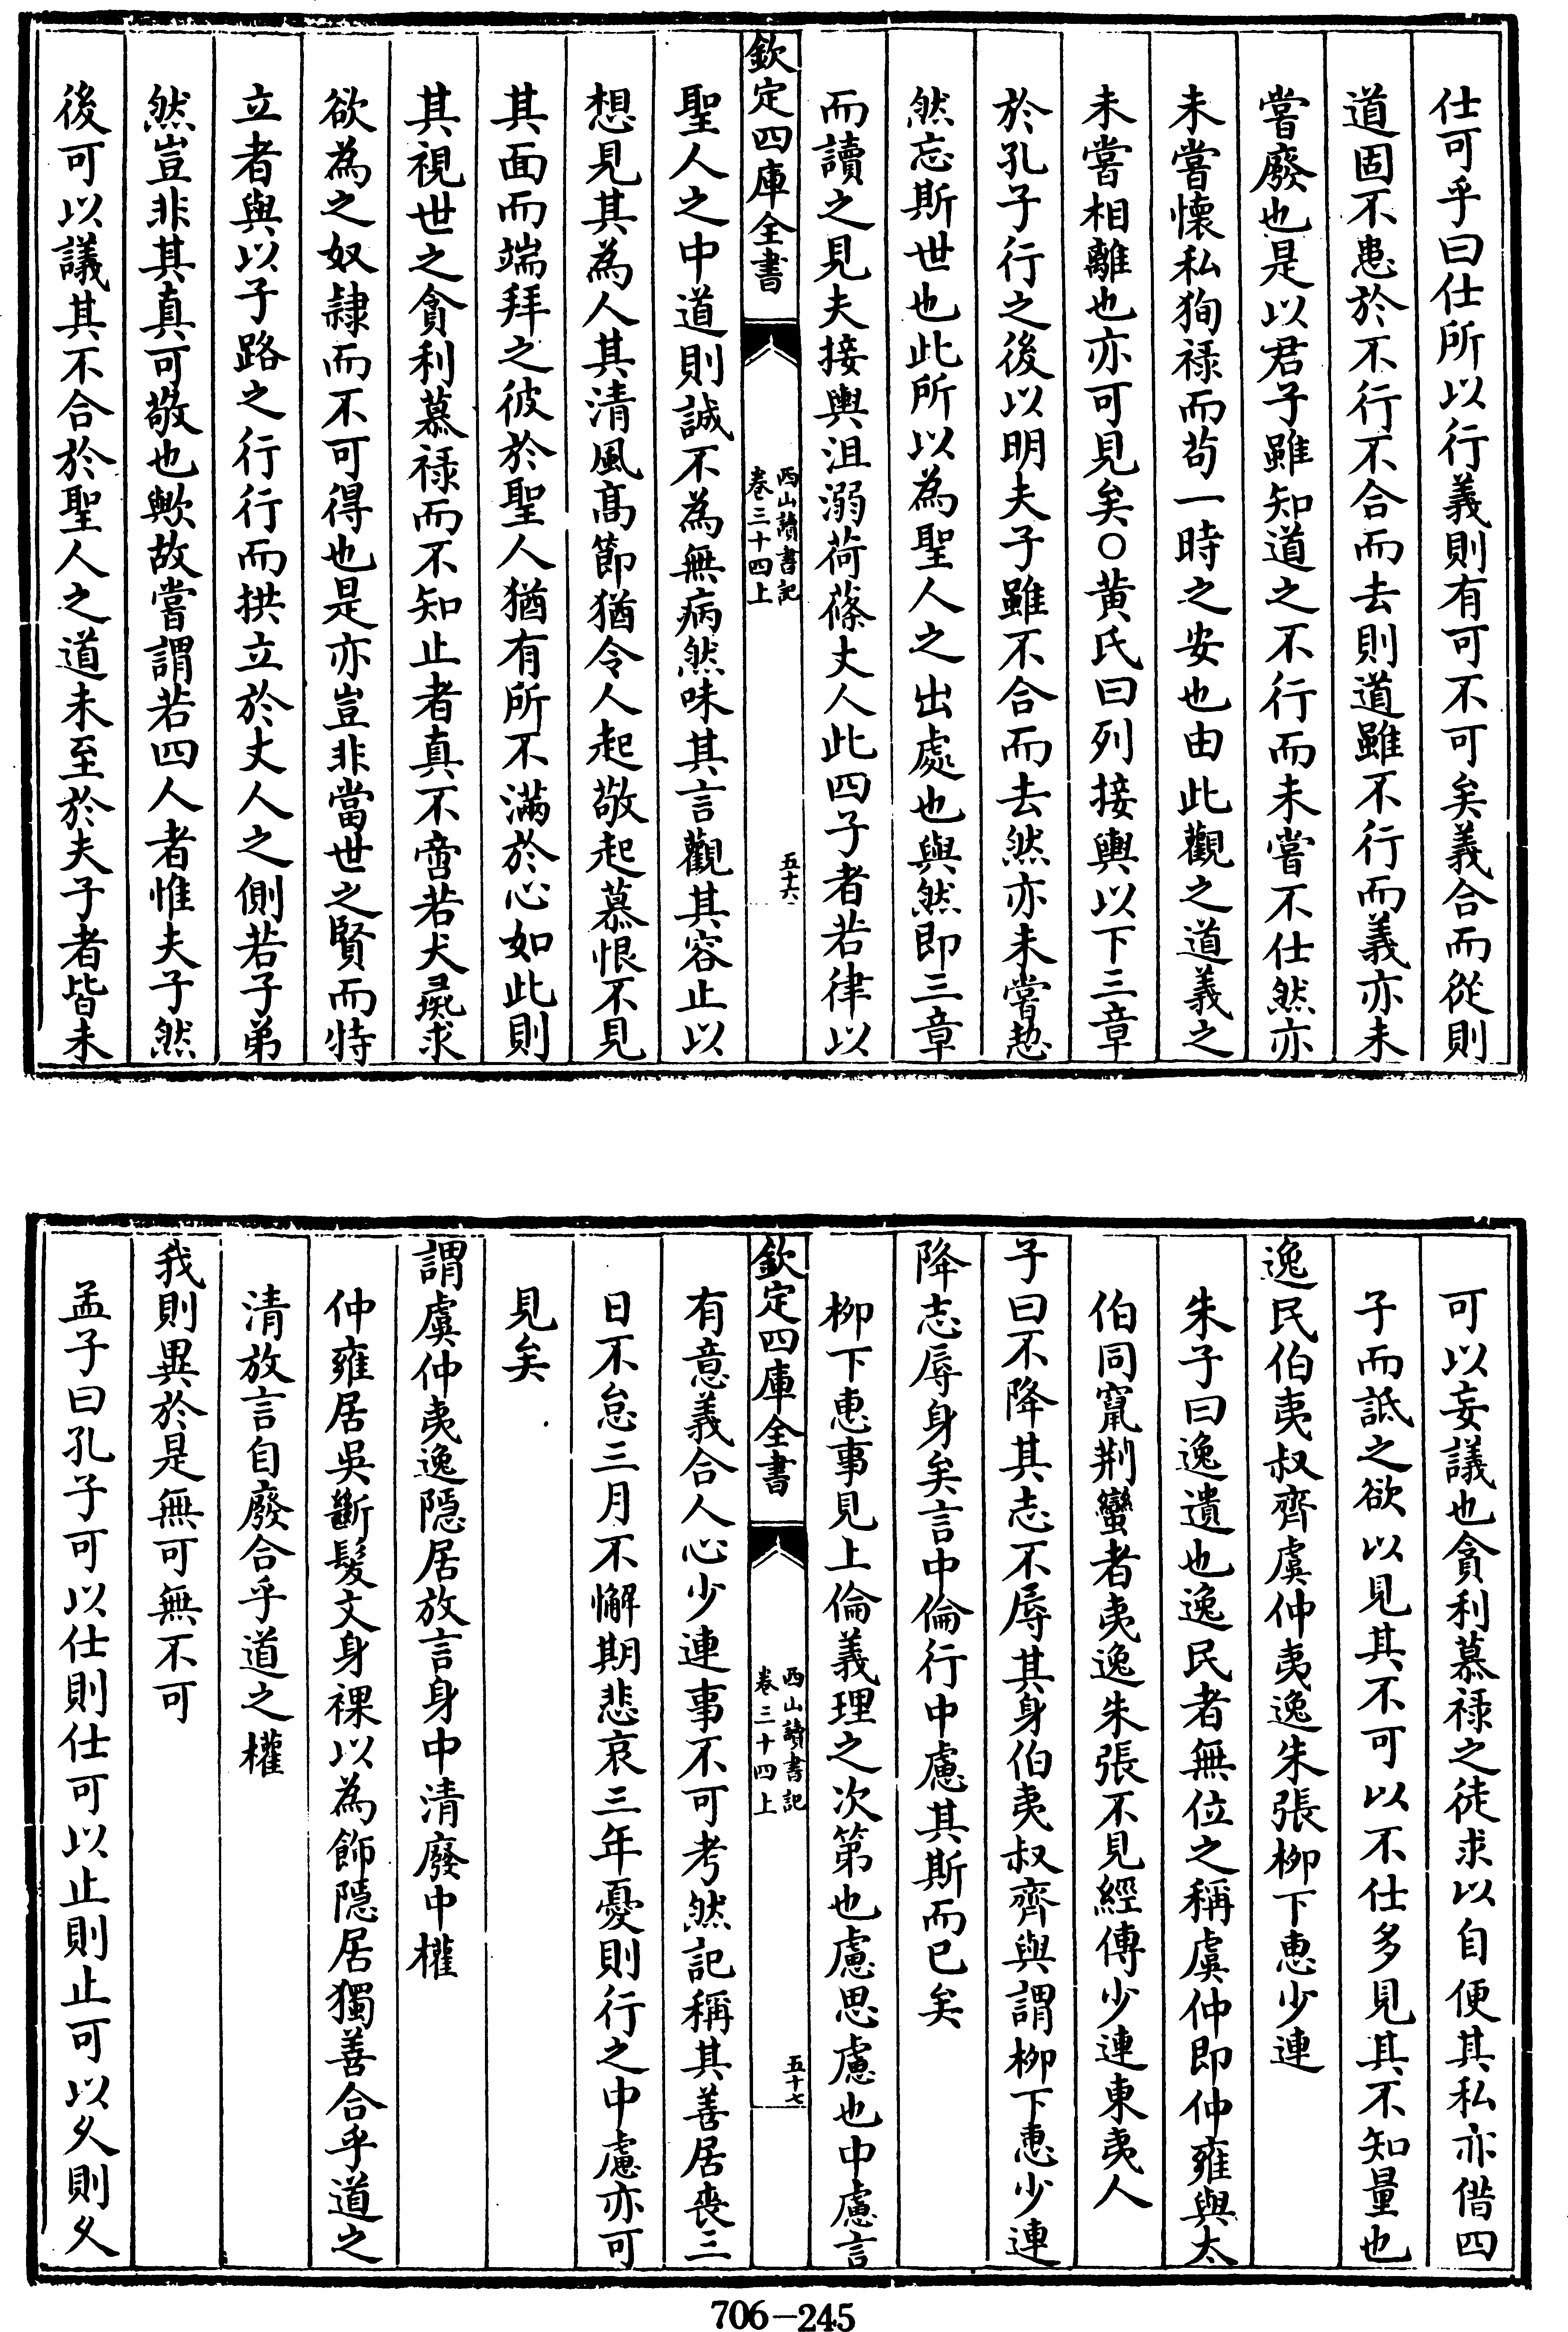 仕可乎曰仕所以行義則有可不可矣義合而從則
道固不患於不行不合而去則道雖不行而義亦未
嘗廢也是以君子雖知道之不行而未嘗不仕然亦
未嘗懷私狥禄而苟一時之安也由此觀之道義之
未嘗相離也亦可見矣○黃氏曰列接輿以下三章
於孔子行之後以明夫子雖不合而去然亦未嘗恝
然忘斯世也此所以為聖人之出處也與然即三章
而讀之見夫接輿沮溺荷蓧丈人此四子者若律以
欽定四庫全書
西山讀書記
卷三十四上
五十六
聖人之中道則誠不為無病然味其言觀其容止以
想見其為人其清風髙節猶令人起敬起慕恨不見
其面而端拜之彼於聖人猶有所不滿於心如此則
其視世之貪利慕禄而不知止者真不啻若犬彘求
欲為之奴隷而不可得也是亦豈非當世之賢而特
立者與以子路之行行而拱立於丈人之側若子弟
然豈非其真可敬也歟故嘗謂若四人者惟夫子然
後可以議其不合於聖人之道未至於夫子者皆未
可以妄議也貪利慕禄之徒求以自便其私亦借四
子而詆之欲以見其不可以不仕多見其不知量也
逸民伯夷叔齊虞仲夷逸朱張柳下惠少連
朱子曰逸遺也逸民者無位之稱虞仲即仲雍與太
伯同竄荆蠻者夷逸朱張不見經傳少連東夷人
子曰不降其志不辱其身伯夷叔齊與謂柳下惠少連
降志辱身矣言中倫行中慮其斯而已矣
柳下惠事見上倫義理之次第也慮思慮也中慮言
欽定四庫全書
西山讀書記
卷三十四上
五十七
有意義合人心少連事不可考然記稱其善居喪三
日不怠三月不懈期悲哀三年憂則行之中慮亦可
見矣
謂虞仲夷逸隱居放言身中清廢中權
仲雍居吳斷髮文身裸以為飾隱居獨善合乎道之
清放言自廢合乎道之權
我則異於是無可無不可
孟子曰孔子可以仕則仕可以止則止可以久則久
706-245